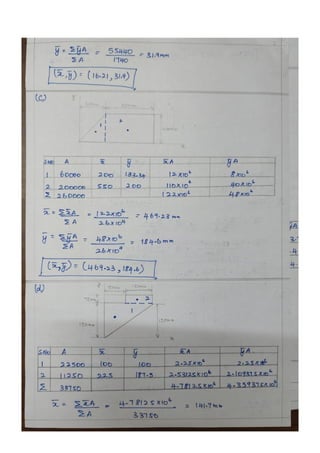 ȳ = ΣȳA / ΣA = 55440 / 1740 = 31.9mm
(x̄,ȳ) = (16.21, 31.9)
(c)
1 2
S.No A x̄ ȳ x̄A ȳA
1 60000 200 133.34 12x10⁶ 8x10⁶
2 200000 550 200 110x10⁶ 40x10⁶
Σ 260000 122x10⁶ 48x10⁶
x̄ = Σx̄A / ΣA = 122x10⁶ / 26x10⁴ = 469.23 mm
ȳ = ΣȳA / ΣA = 48x10⁶ / 26x10⁴ = 184.6mm
(x̄,ȳ) = (469.23, 184.6)
(d)
1 2
S.No A x̄ ȳ x̄A ȳA
1 22500 100 100 2.25x10⁶ 2.25x10⁶
2 11250 225 187.5 2.53125x10⁶ 2.109375x10⁶
Σ 33750 4.78125x10⁶ 4.359375x10⁶
x̄ = Σx̄A / ΣA = 4.78125x10⁶ / 33750 = 141.7mm